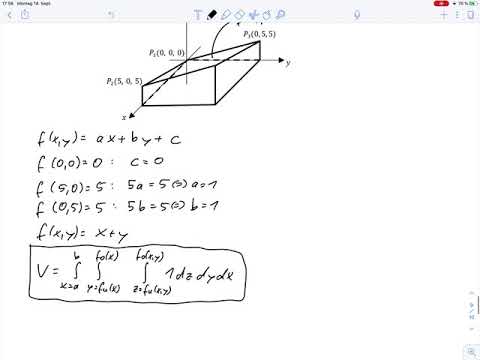 17:56 Montag 14. Sept.
70 %
P₃(0, 5, 5)
P₁(0, 0, 0)
y
P₂(5, 0, 5)
x
f(x,y) = ax + by + c
f(0,0) = 0 : c = 0
f(5,0) = 5 : 5a = 5 ⇔ a = 1
f(0,5) = 5 : 5b = 5 ⇔ b = 1
f(x,y) = x + y
V = ∫_{x=a}^{b} ∫_{y=fu(x)}^{fo(x)} ∫_{z=fu(x,y)}^{fo(x,y)} 1 dz dy dx